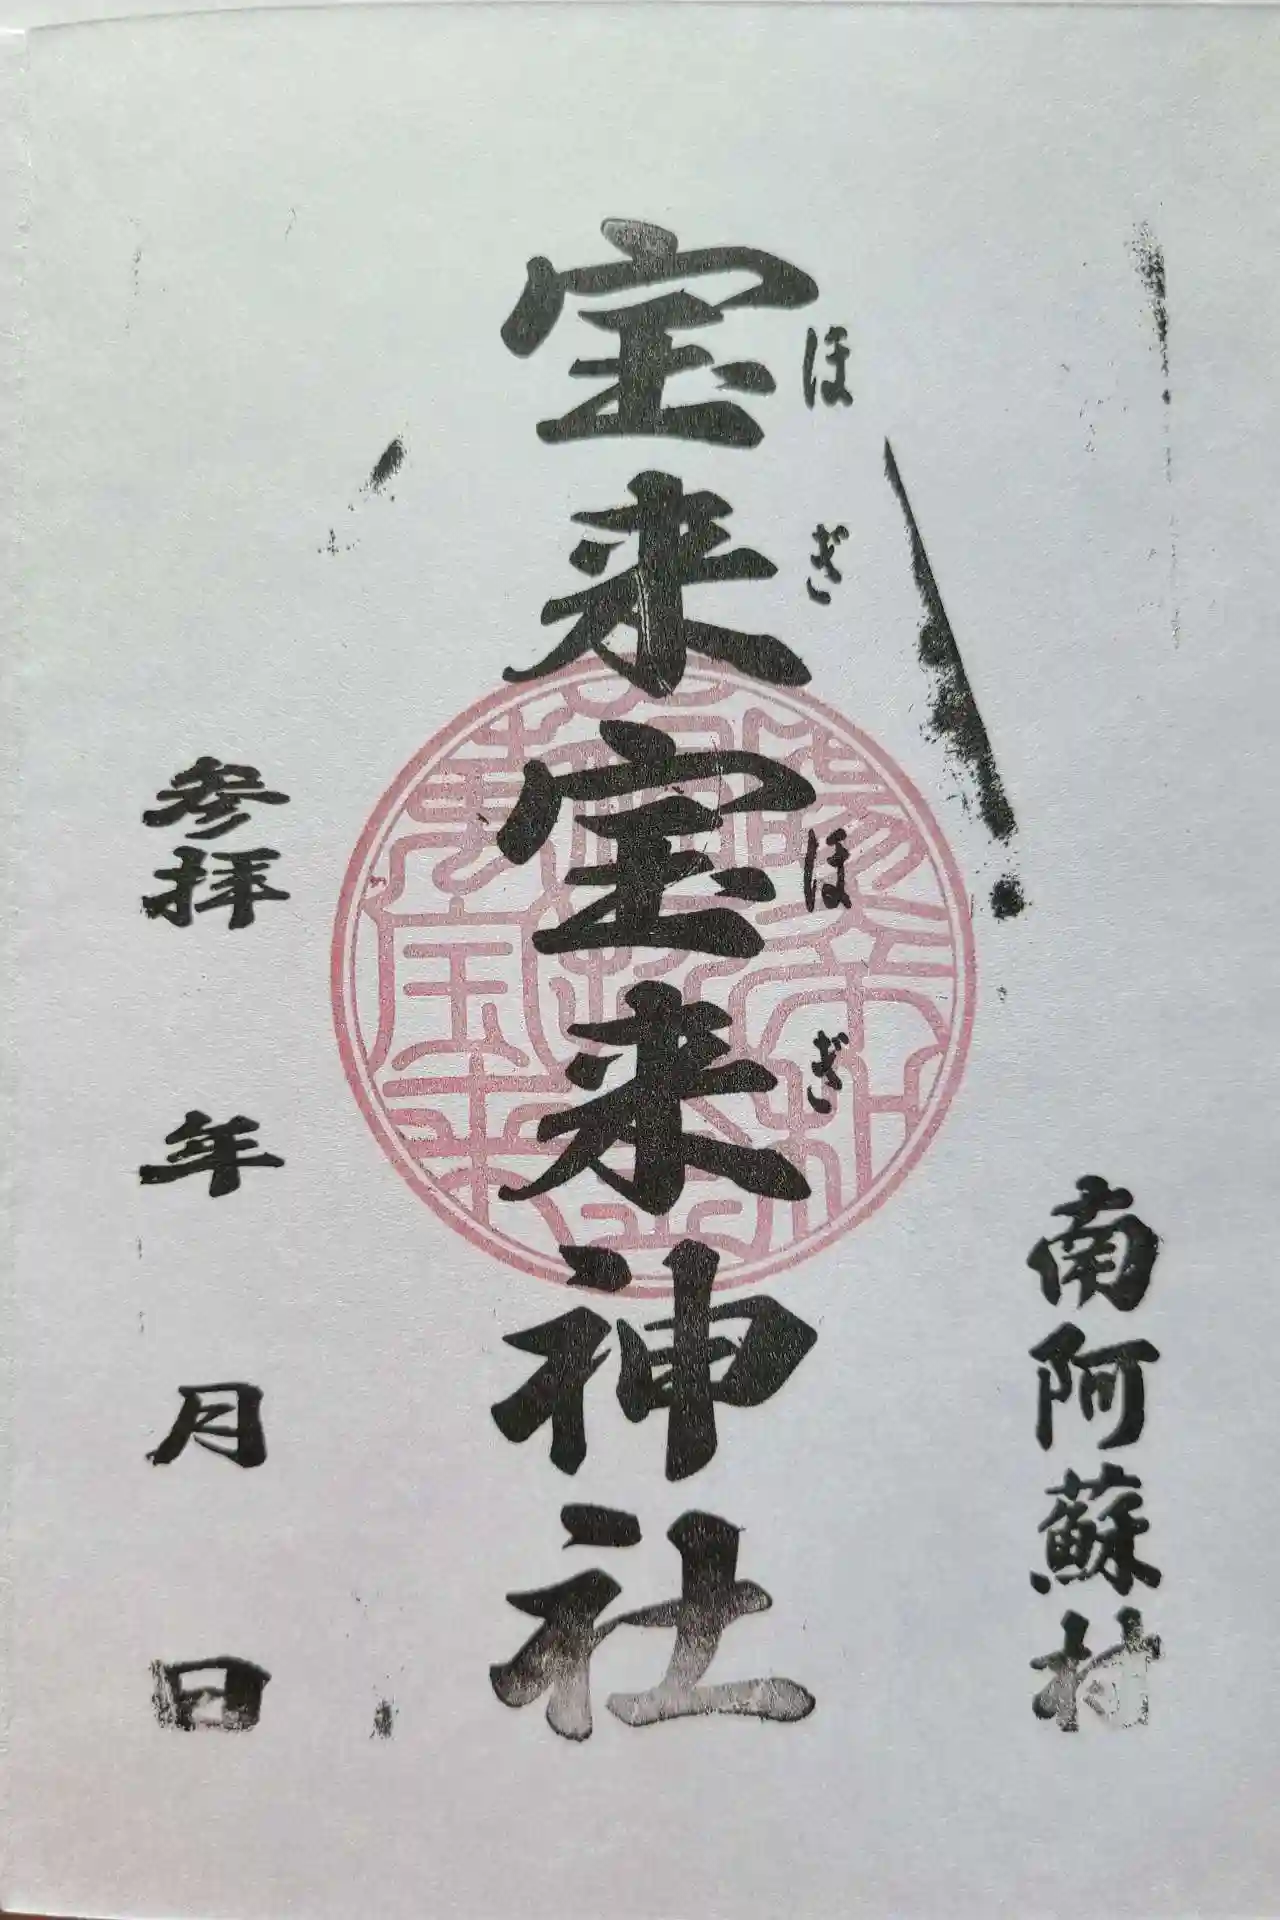 南阿蘇村
宝来宝来神社
ほぎほぎ
参拝 年 月 日